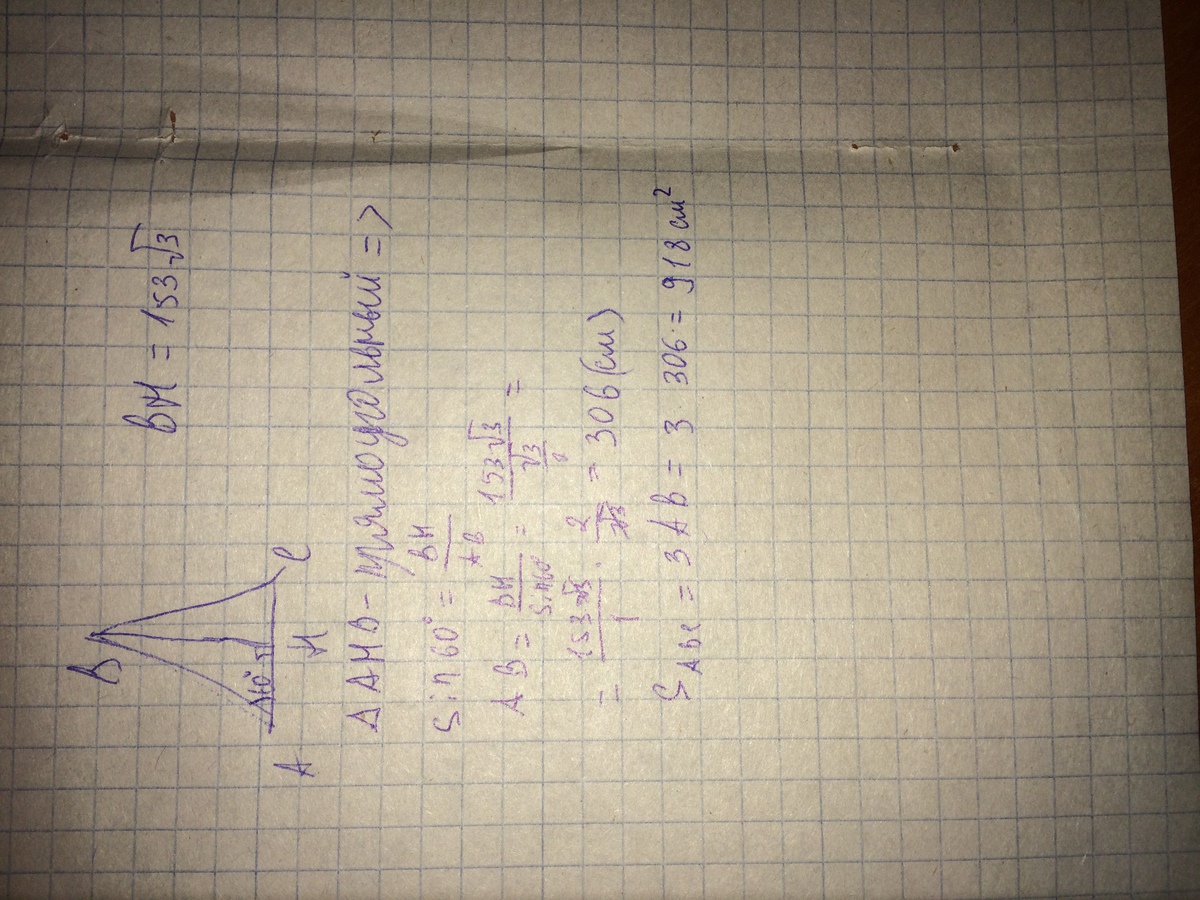 B
A
H
C
BH = 153√3
Δ AHB - прямоугольный =>
Sin 60° = BH/AB
AB = BH/Sin60 = 153√3/(√3/2) =
= 153√3/1 · 2/√3 = 306 (см)
S ABC = 3 AB = 3 306 · = 918 см²